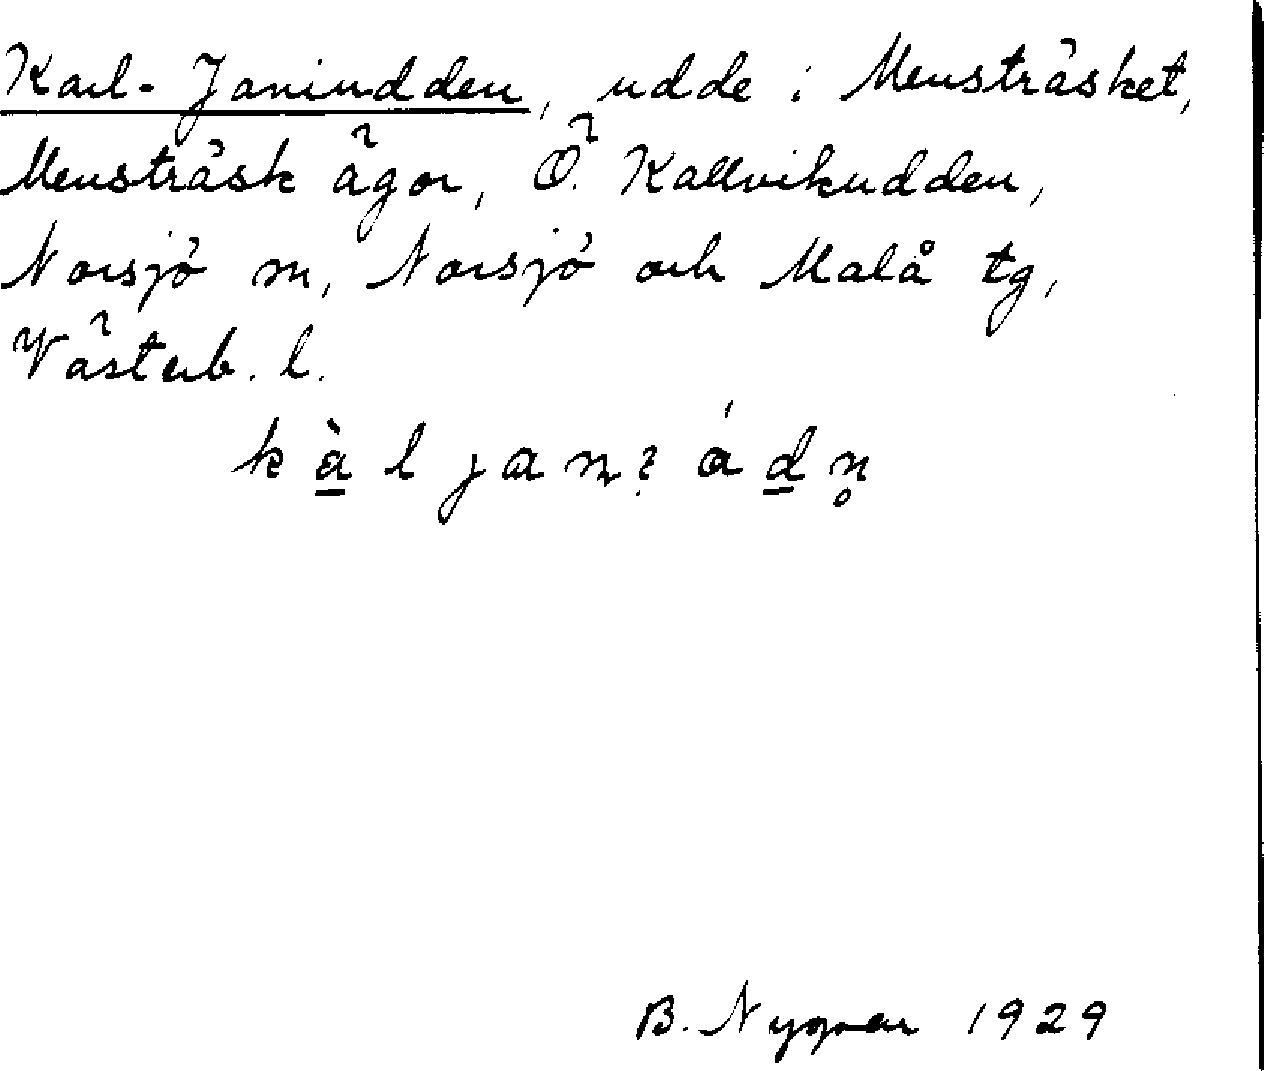 Karl-Janiudden, udde i Mensträsket,
Mensträsk ägor, Ö. Kallvikudden,
Norsjö sn, Norsjö och Malå tg,
Västerb. l.
B. Nygren 1929